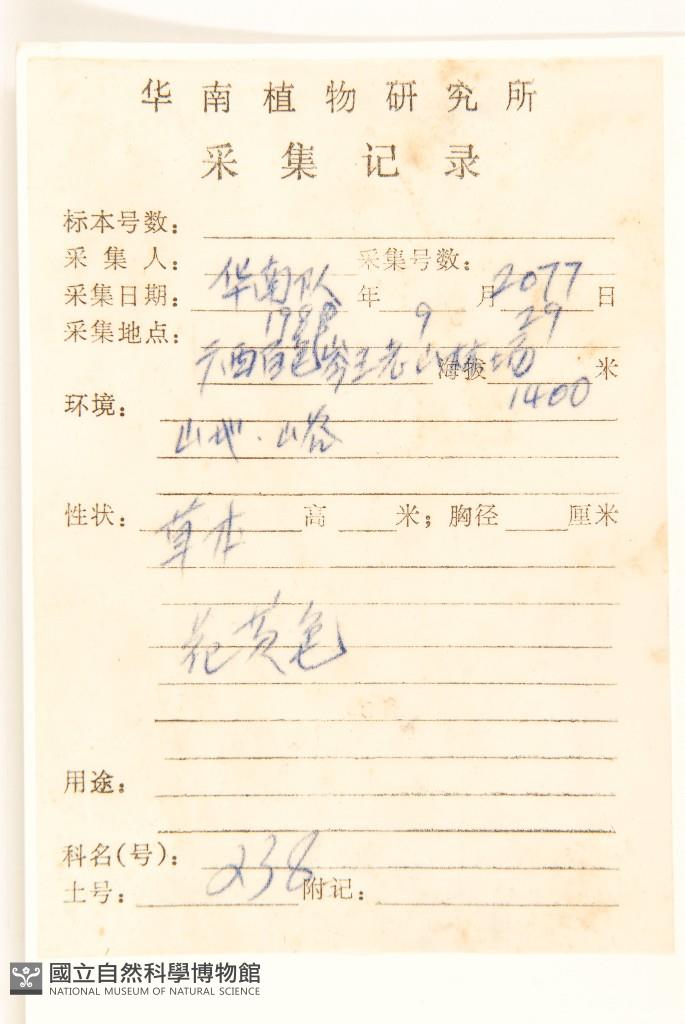 华南植物研究所
采集记录
标本号数：
采集人：华南队 采集号数：2077
采集日期：19 年 9 月 29 日
采集地点：广西百色岑王老山林场
海拔 1400 米
环境：山地．山谷
性状：草本 高 米；胸径 厘米
花黄色
用途：
科名(号)：238
土号： 附记：
國立自然科學博物館
NATIONAL MUSEUM OF NATURAL SCIENCE